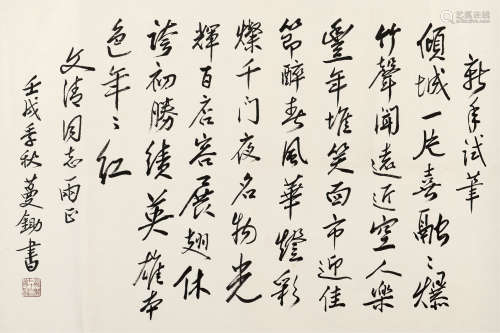 新年試筆
傾城一片喜融々爆
竹聲聞遠近空人樂
豐年堆笑面市迎佳
節醉春風華燈彩
燦千门夜名物光
輝百店容展翅休
誇初勝績英雄本
色年々红
文清同志雨正
壬戌季秋蔓鋤書